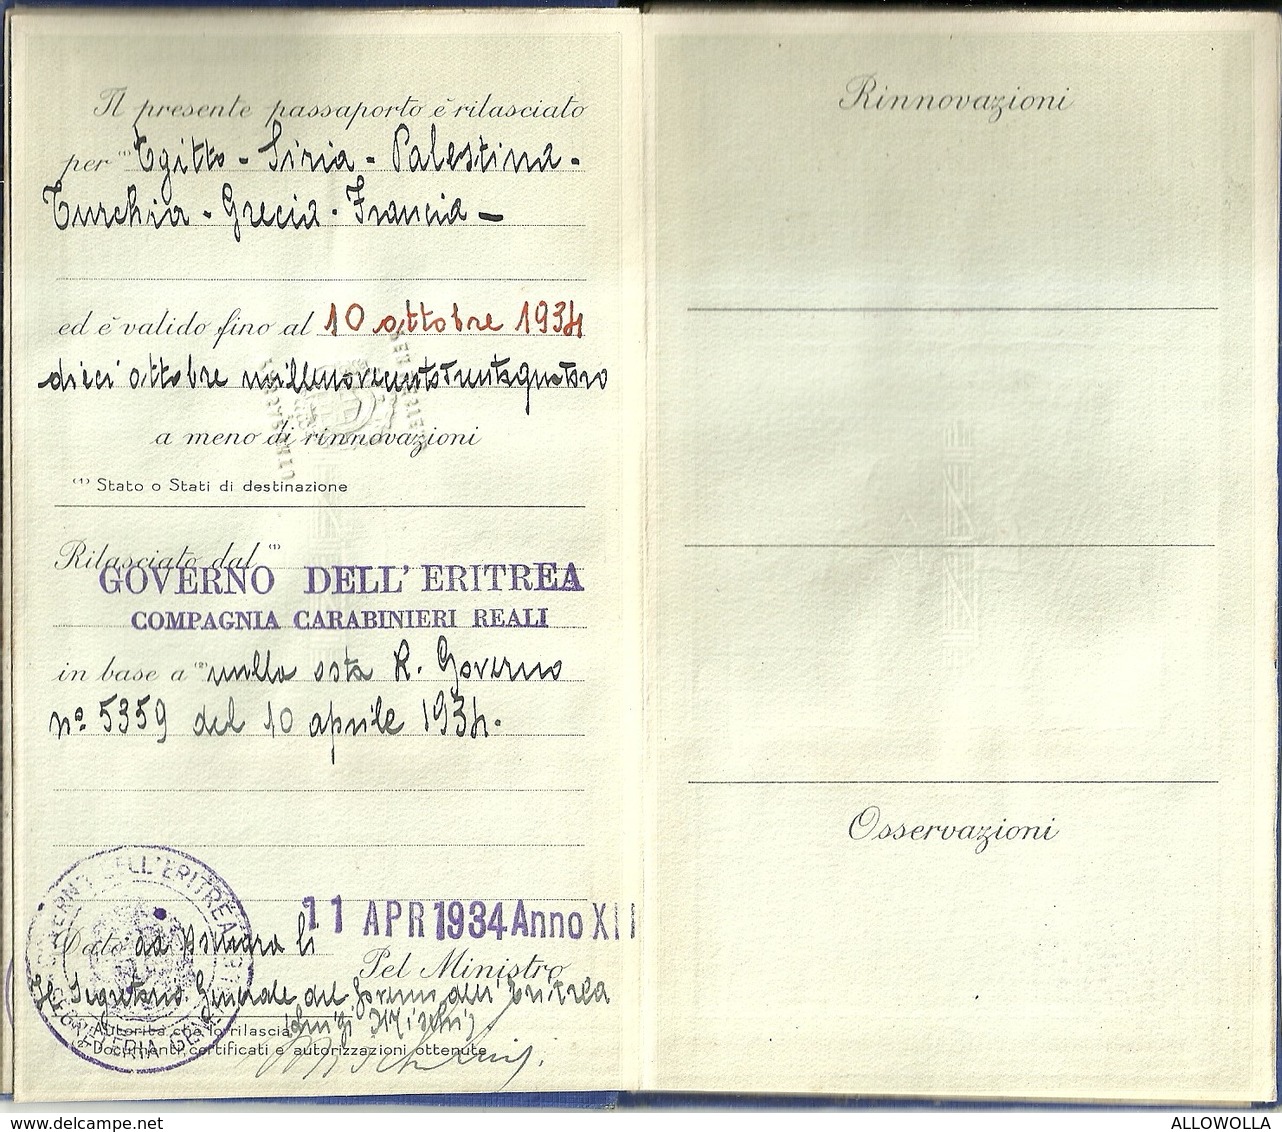 Il presente passaporto è rilasciato
per (1) Egitto - Siria - Palestina -
Turchia - Grecia - Francia -
ed è valido fino al 10 ottobre 1934
dieci ottobre millenovecentotrentaquattro
a meno di rinnovazioni
(1) Stato o Stati di destinazione
Rilasciato dal (1)
GOVERNO DELL'ERITREA
COMPAGNIA CARABINIERI REALI
in base a (2) nulla osta R. Governo
nº 5359 del 10 aprile 1934.
GOVERNO DELL'ERITREA
SEGRETERIA GENERALE
11 APR 1934 Anno XII
Dato ad Asmara li
Pel Ministro
Il Segretario Generale del Governo dell'Eritrea
Luigi
(1) Autorità che lo rilascia
(2) Documenti, certificati e autorizzazioni ottenute
Rinnovazioni
Osservazioni
www.delcampe.net
ALLOWOLLA